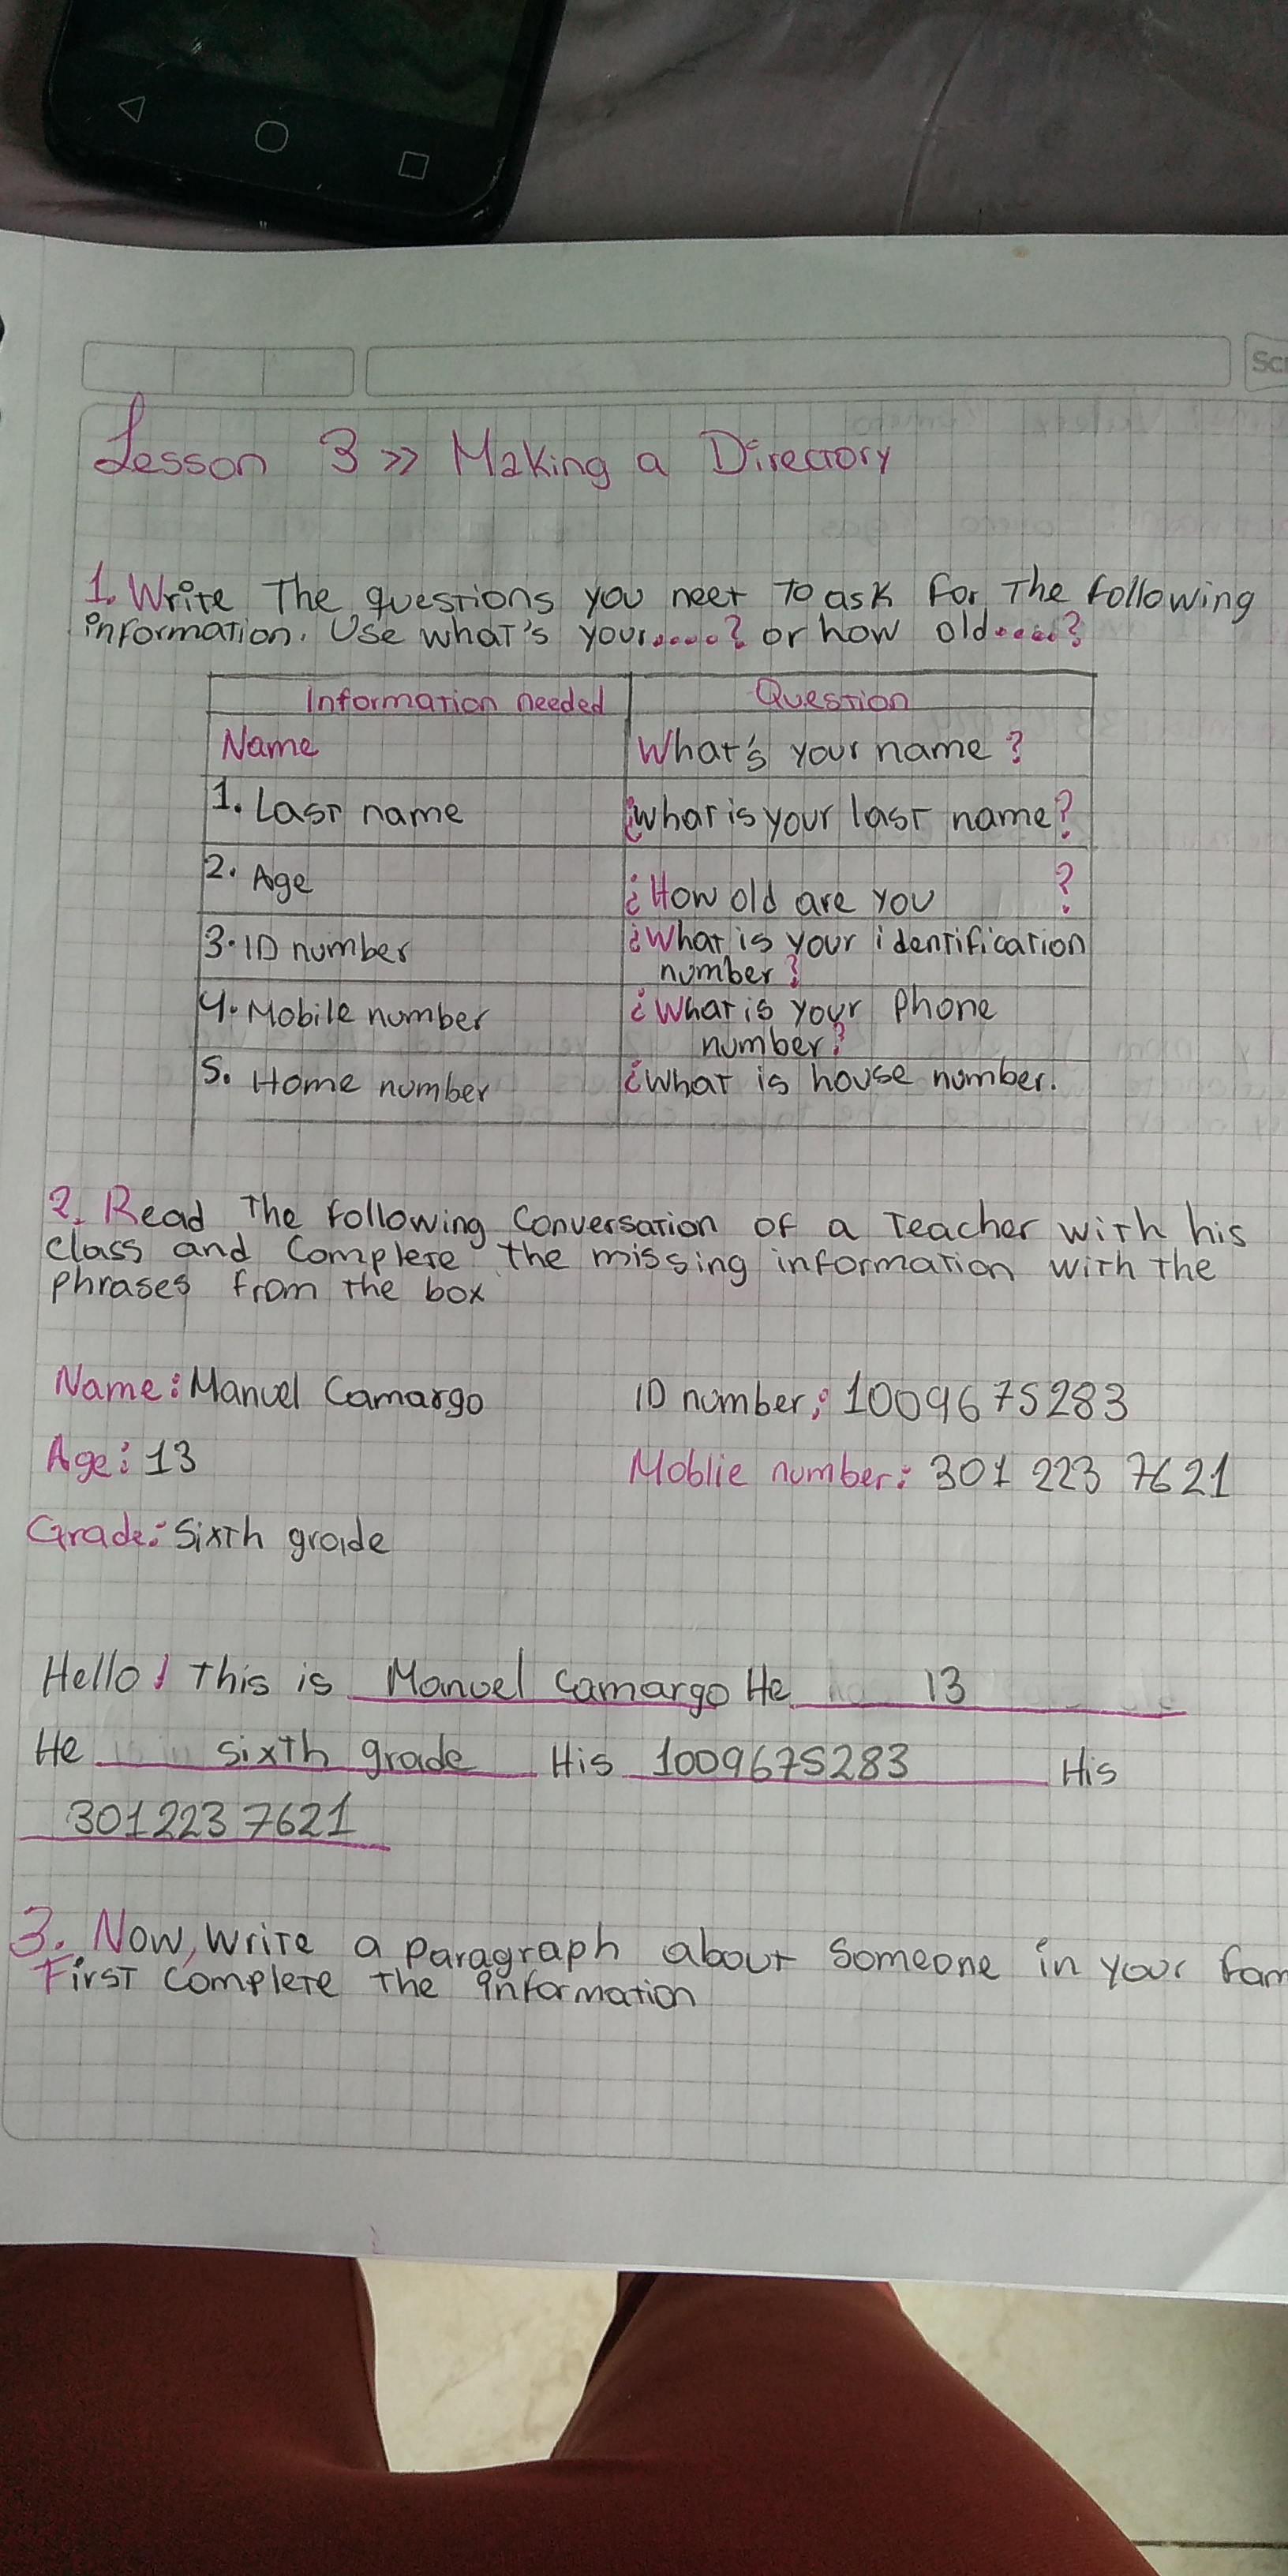 Scr
Lesson 3 >> Making a Directory
1. Write The questions you neet To ask For The Following
information. Use what's your.....? or how old.....?
Information needed Question
Name What's your name ?
1. Last name ¿what is your last name?
2. Age ¿How old are you ?
3. ID number ¿What is your identification
number?
4. Mobile number ¿What is your Phone
number?
5. Home number ¿What is house number.
2. Read The Following Conversation of a Teacher with his
class and Complete the missing information with the
phrases from the box
Name: Manuel Camargo ID number: 1009675283
Age: 13 Moblie number: 301 223 7621
Grade: Sixth grade
Hello! This is Manuel Camargo He 13
He sixth grade His 1009675283 His
301223 7621
3. Now, Write a paragraph about Someone in your fam
First Complete The information